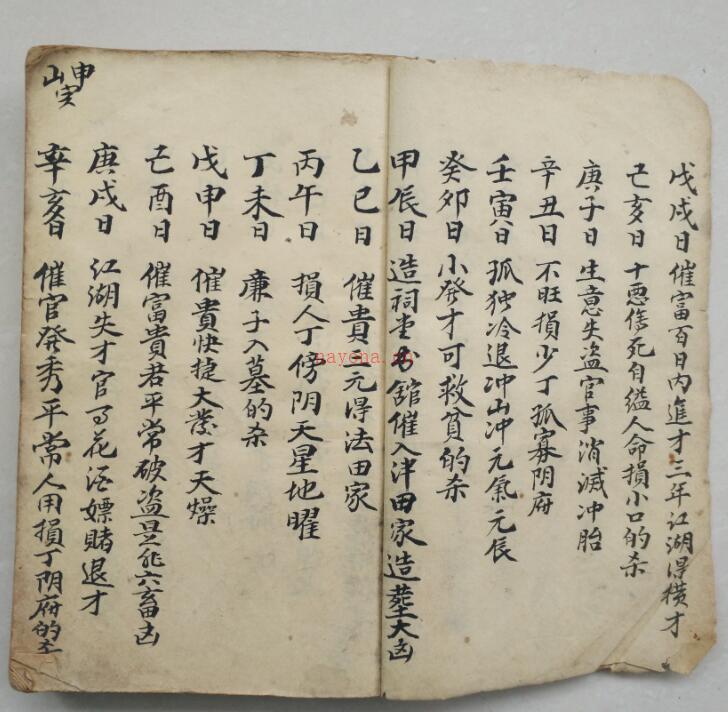 戊戌日催富百日内進才三年江湖得横才
己亥日十悪傷死自缢人命損小口的杀
庚子日生意失盗官事消滅冲胎
辛丑日不旺損少丁孤寡阴府
壬寅日孤独冷退冲山冲元氣元辰
癸卯日小發才可救貧的杀
甲辰日造祠堂書館催入泮田家造葬大凶
乙巳日催貴三元得法田家
丙午日損人丁傍阴天星地曜
丁未日廉子入墓的杀
戊申日催貴快捷大發才天燥
己酉日催富貴君平常破盗是非六畜凶
庚戌日江湖失才官司花酒嫖賭退才
辛亥日催官發秀平常人用損丁阴府的
申山寅
nayona.cn